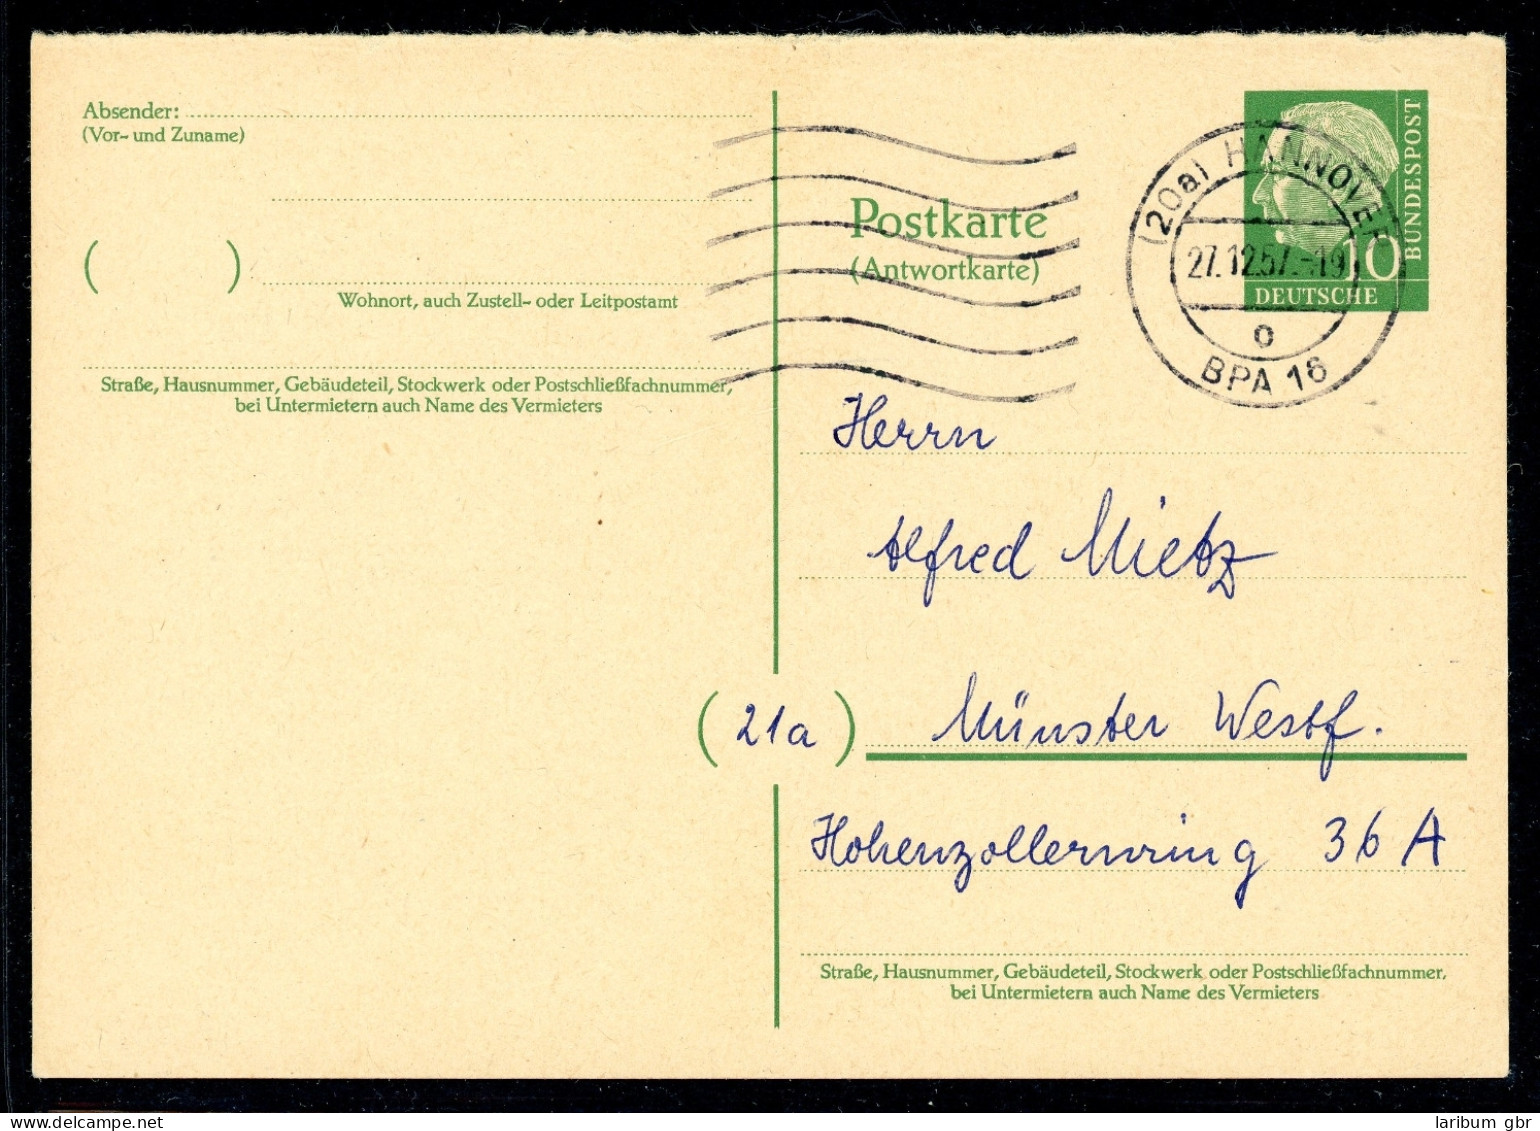 Absender:
(Vor- und Zuname)
( )
Wohnort, auch Zustell- oder Leitpostamt
Straße, Hausnummer, Gebäudeteil, Stockwerk oder Postschließfachnummer,
bei Untermietern auch Name des Vermieters
Postkarte
(Antwortkarte)
(20a) HANNOVER
27.12.57.-19
o
BPA 16
10
BUNDESPOST
DEUTSCHE
Herrn
Alfred Mietz
(21a) Münster Westf.
Hohenzollernring 36 A
Straße, Hausnummer, Gebäudeteil, Stockwerk oder Postschließfachnummer,
bei Untermietern auch Name des Vermieters
laribum gbr